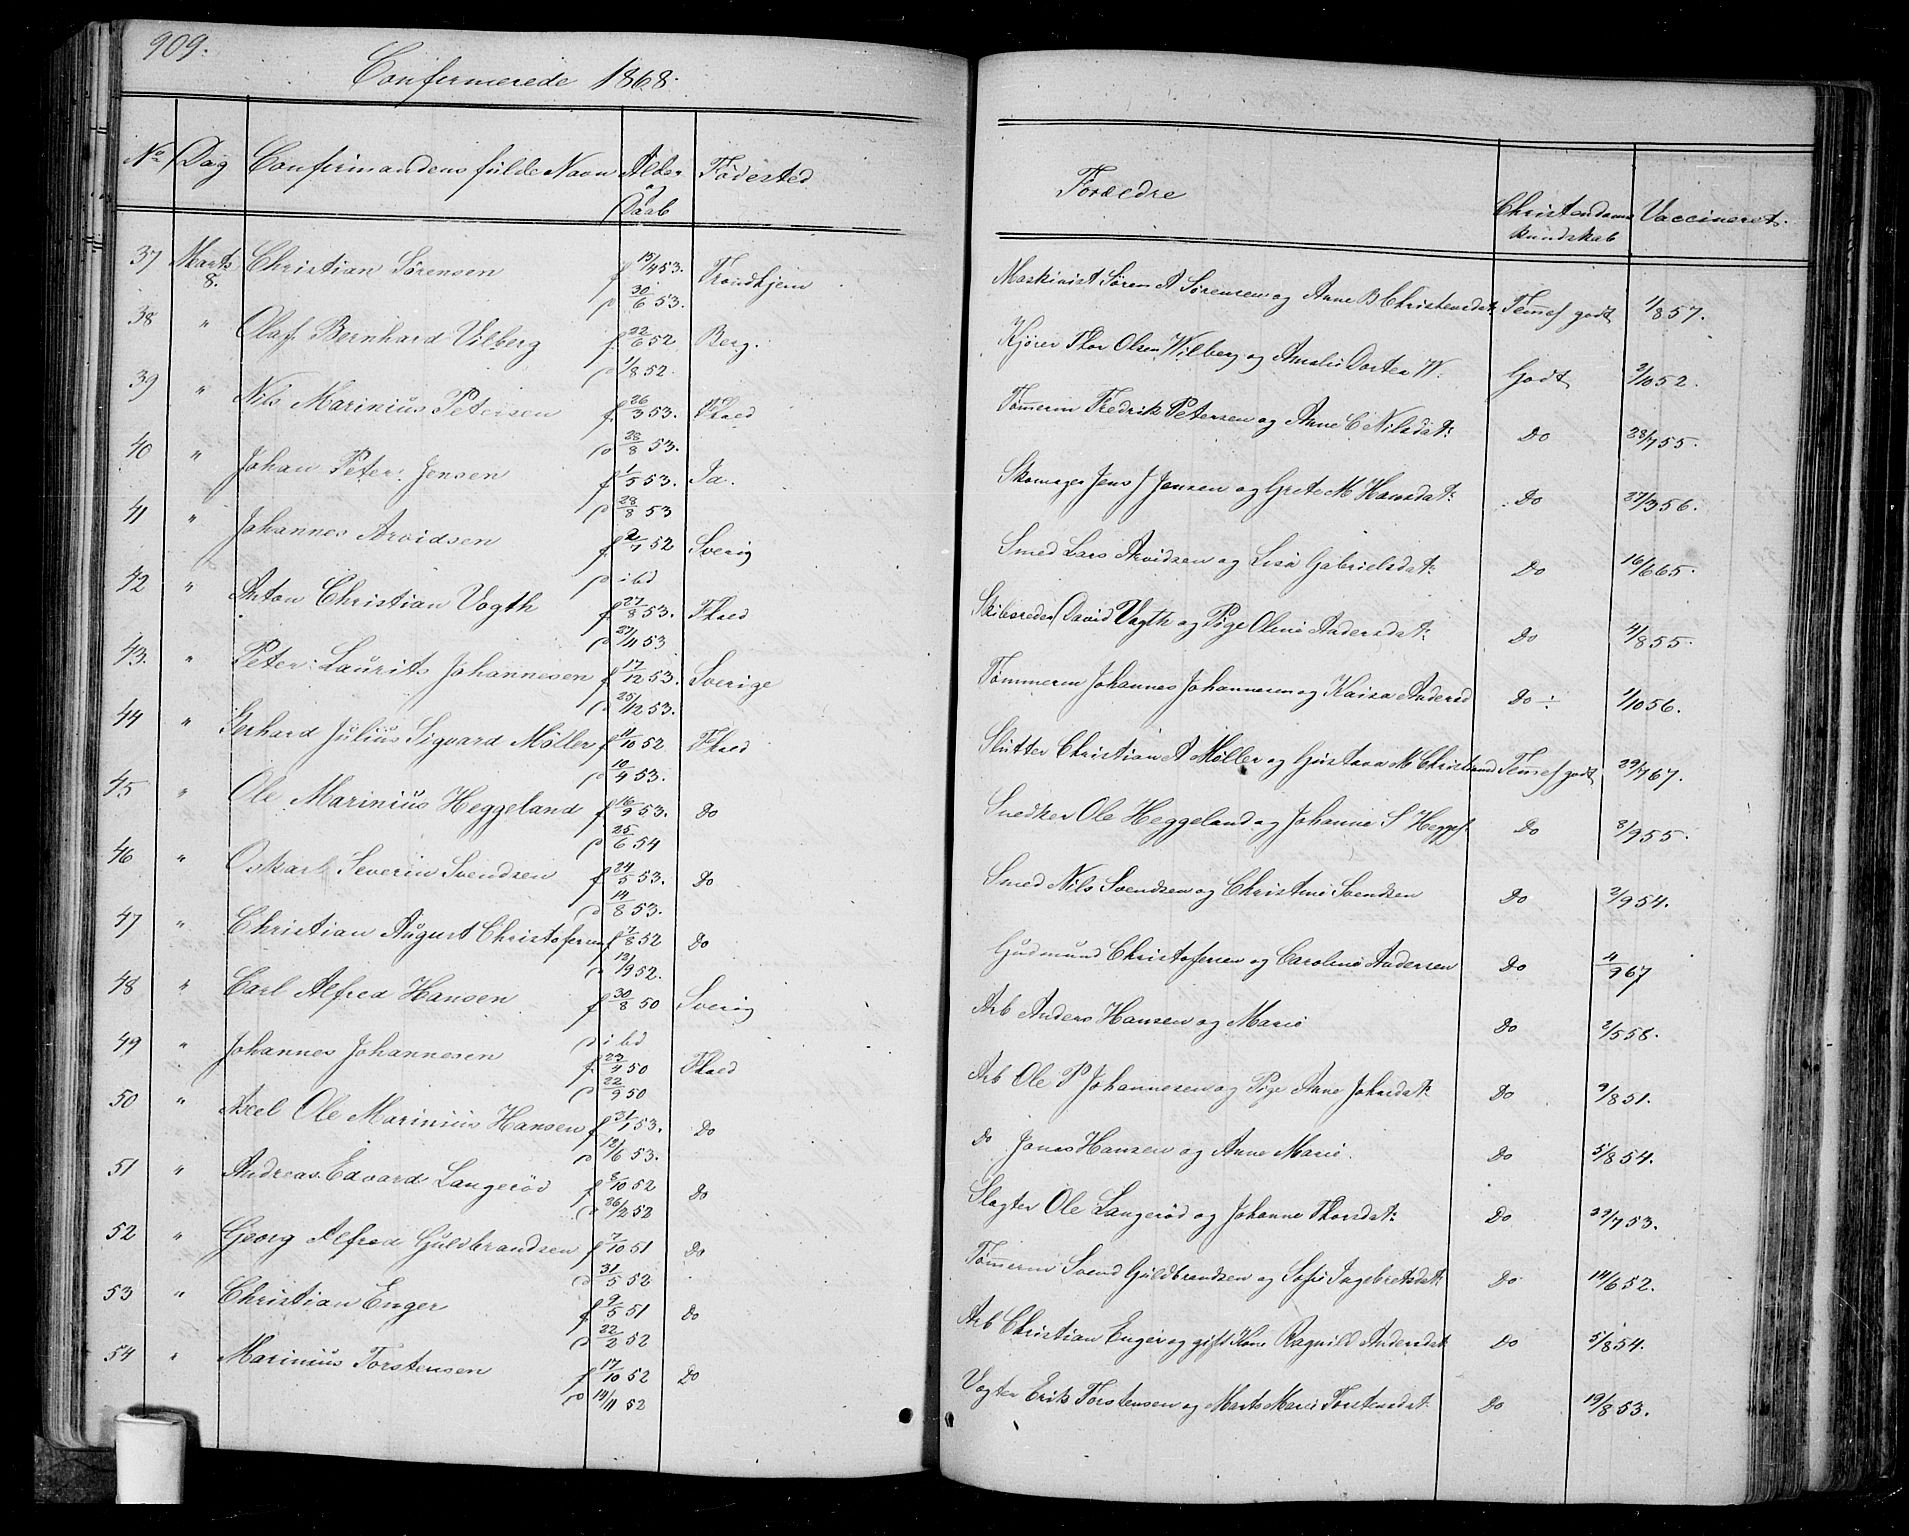 909.
Confirmerede 1868.
No Dag Confirmandens fulde Navn Alder og Daab Fødested Forældre Christendoms kundskab Vaccineret
37 Marts 8. Christian Sørensen f 15/4 53. Trondhjem Maskinist Søren A Sørensen og Anne B Christensdat: Temel godt 1/8 57.
d 30/6 53.
38 " Olaf Bernhard Vilberg f 22/6 52 Berg. Kjører Thor Olsen Wilberg og Amalie Dortea W. Godt 2/10 52.
d 1/8 52.
39 " Nils Marinius Petersen f 26/3 53. Fhald Tømmerm Fredrik Petersen og Anne C Nilsdat: Do 28/7 55.
d 28/8 53.
40 " Johan Peter Jensen f 1/5 53. Do. Skomager Jens J Jensen og Grete M Hansdat: Do 27/3 56.
d 28/8 53
41 " Johannes Arvidsen f 2/7 52 Sverig Smed Lars Arvidsen og Lisa Gabrielsdat: Do 16/6 65.
d ibd
42 " Anton Christian Vogth f 27/8 53. Fhald Skibsreder David Vogth og Pige Oline Andersdat: Do 4/8 55.
d 27/11 53
43. " Peter Laurits Johannesen f 17/12 53. Sverige Tømmerm Johannes Johannesen og Kaisa Andersd Do ÷ 1/10 56.
d 25/12 53.
44 " Gerhard Julius Sigvard Møller f 11/10 52 Fhald Slutter Christian A Møller og Gustava M Christiansd Temel godt 29/7 67.
d 10/4 53.
45 " Ole Marinius Heggeland f 16/9 53. Do Snedker Ole Heggeland og Johanne S Heggel. Do 8/9 55.
d 25/6 54
46 " Oskarl Severin Svendsen f 24/5 53. Do Smed Nils Svendsen og Christine Svendsen Do 2/9 54.
d 14/8 53.
47 " Christian August Christofersen f 7/8 52 Do Gudmund Christofersen og Caroline Andersen Do 4/9 67
d 12/9 52.
48 " Carl Alfred Hansen f 30/8 50 Sverig Arb Anders Hansen og Marie Do 2/5 58.
d ibd
49 " Johannes Johannesen f 23/4 50 Fhald Arb Ole P Johannesen og Pige Anne Johnsdat: Do 9/8 51.
d 22/9 50
50 " Axel Ole Marinius Hansen f 31/1 53. Do Do Jonas Hansen og Anne Marie. Do 5/8 54.
d 12/6 53.
51 " Andreas Edvard Langerød f 8/10 52 Do Slagter Ole Langerød og Johanne Thorsdat: Do 29/7 53.
d 26/12 52
52 " Georg Alfred Guldbrandsen f 7/10 51 Do Tømmerm Svend Guldbrandsen og Sofie Ingebretsdat: Do 14/6 52.
d 31/5 52
53 " Christian Enger f 9/5 51 Do Arb Christian Enger og gift Kone Ragnild Andersdat: Do 5/8 54.
d 22/2 52
54 " Marinius Torstensen f 17/10 52 Do Vogter Erik Torstensen og Marte Marie Torstensdat: Do 19/8 53.
d 14/11 52